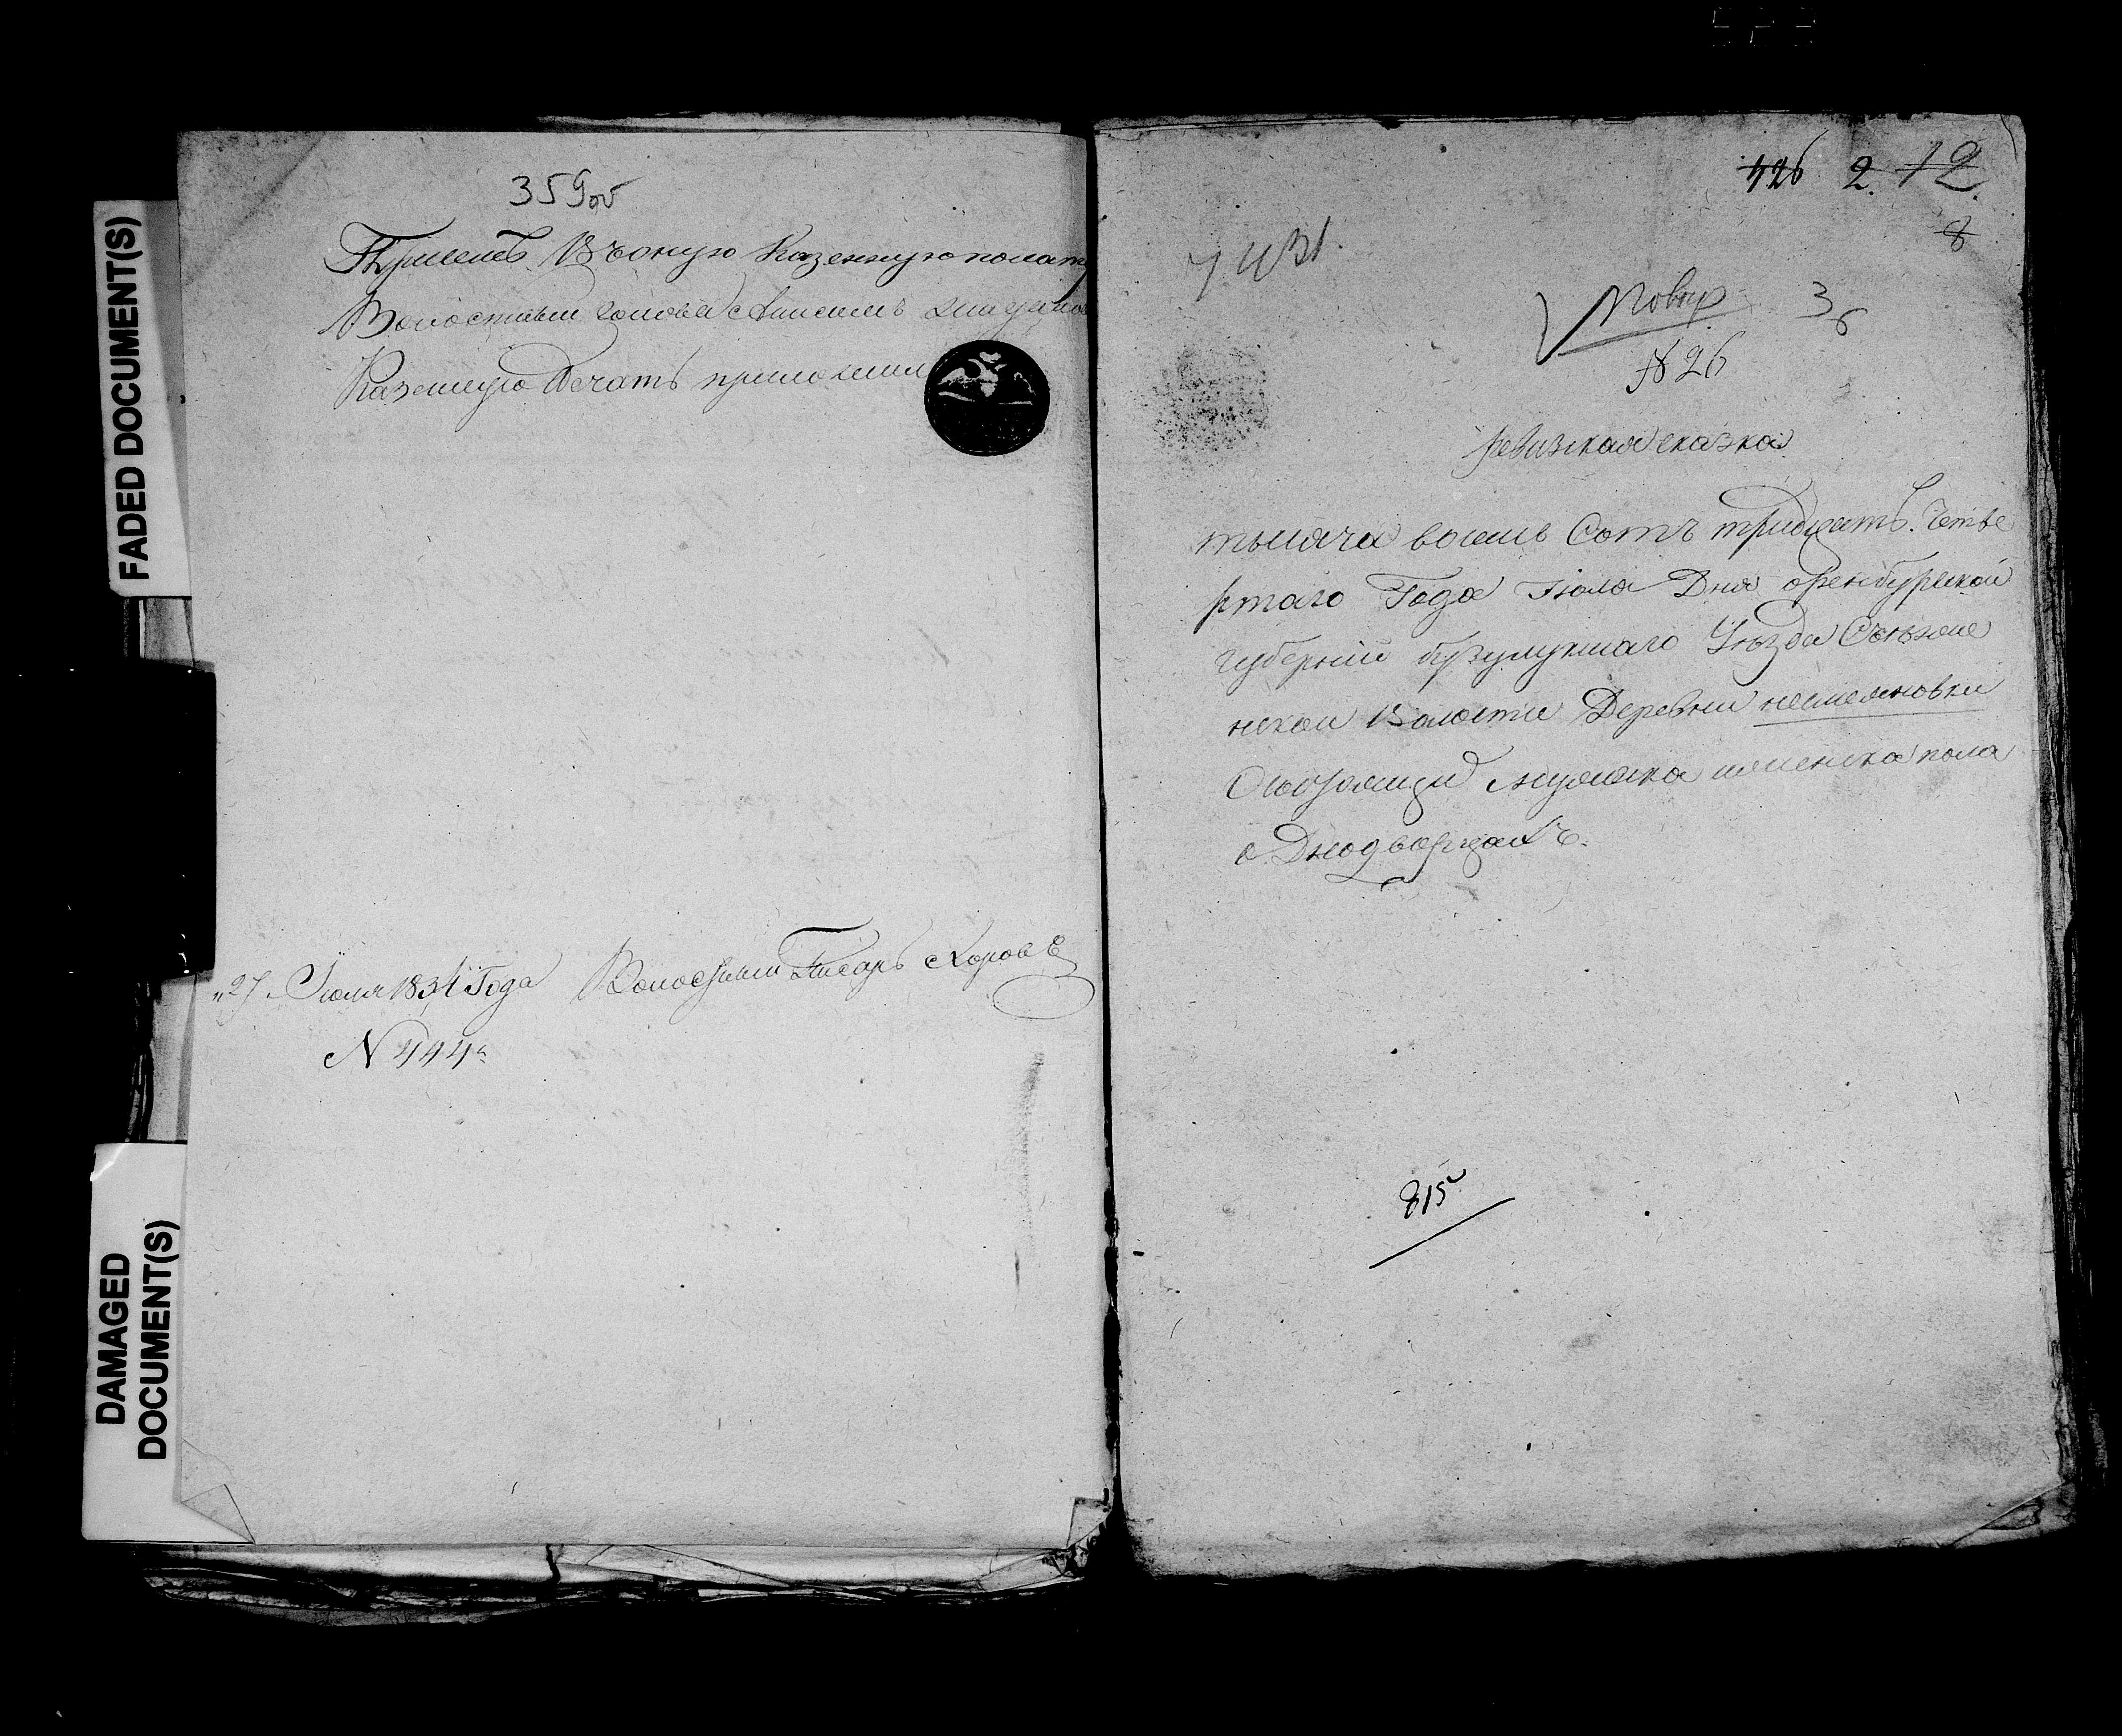 FADED DOCUMENT(S)
DAMAGED
DOCUMENT(S)
359об
Въ оную Казенную полату
Волостный голова
Казенную Печать приложил
"27" Июля 1834 Года Волосный Писарь
N 444
426 2. 12
8
Повер 36
№ 26
ревизская сказка
тысяча восемь Сотъ тридцать. Четве
ртаго Года Июля Дня оренбургской
губернии бузулукскаго Уѣзда Съезже
нской Волости Деревни неплеяновки
Осостоящи мужеска иженска пола
о Днодворцахъ.
815